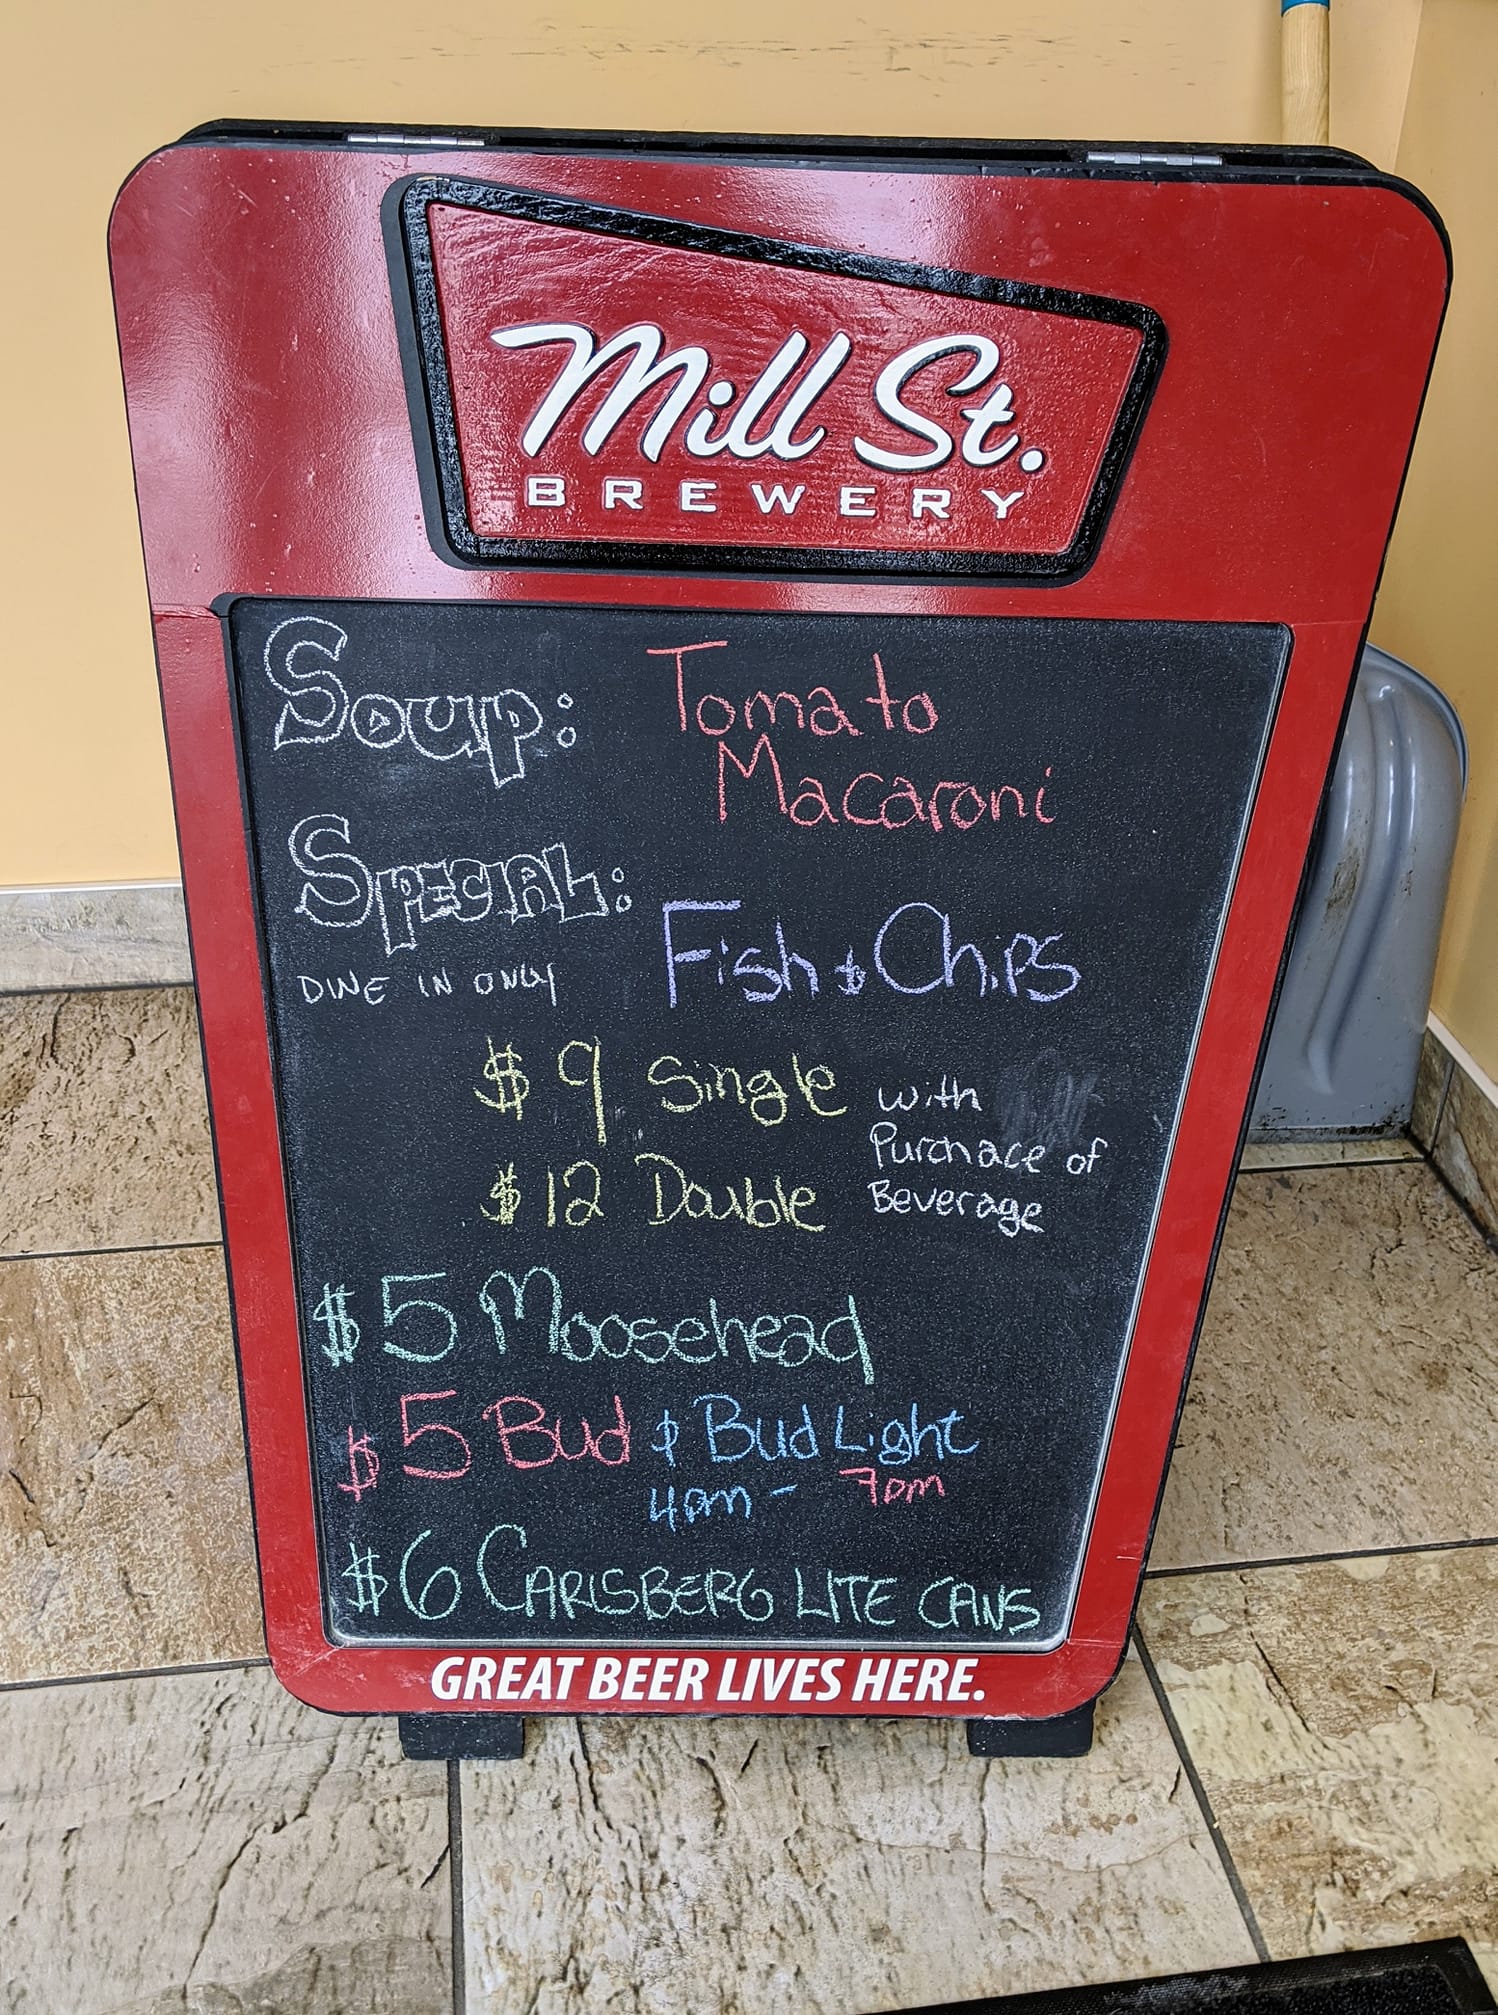 Mill St.
BREWERY
Soup: Tomato
Macaroni
SPECIAL:
DINE IN ONLY Fish & Chips
$9 Single with
Purchace of
$12 Double Beverage
$5 Moosehead
$5 Bud & Bud Light
4pm - 7pm
$6 CARLSBERG LITE CANS
GREAT BEER LIVES HERE.